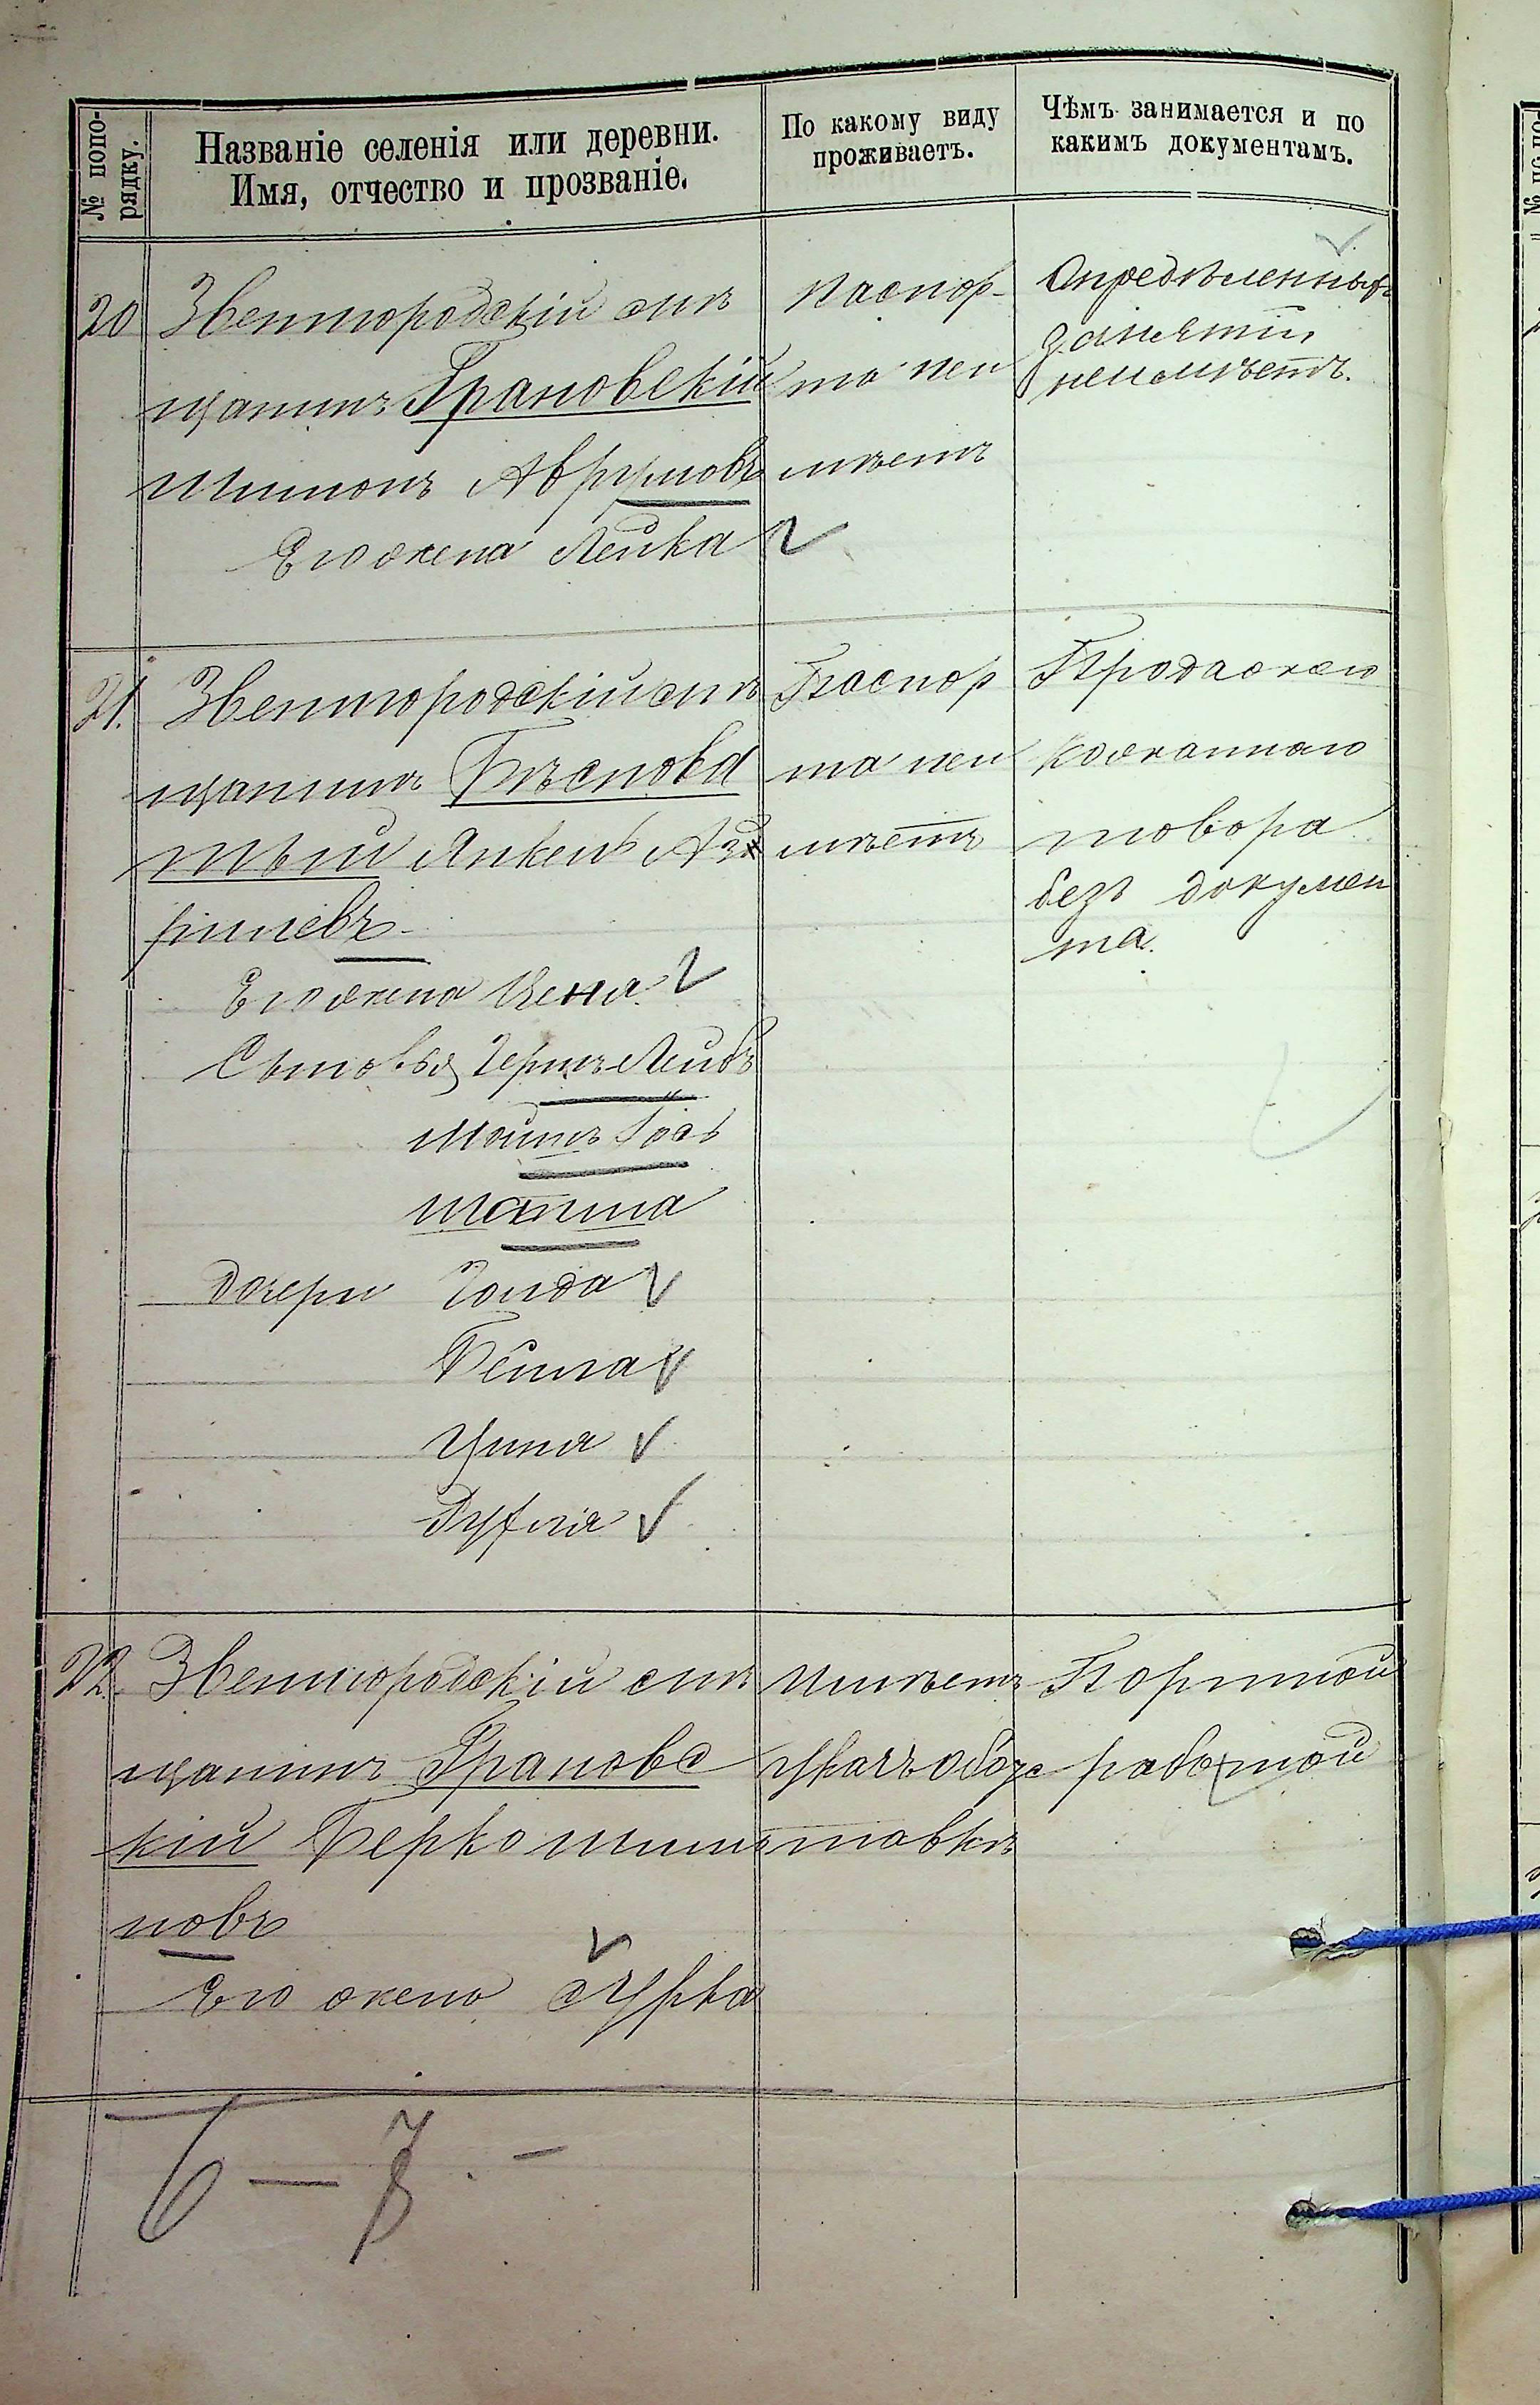 № попо-
рядку.
Названіе селенія или деревни.
Имя, отчество и прозваніе.
По какому виду
проживаетъ.
Чѣмъ занимается и по
какимъ документамъ.
20
Звенигородскій мѣ
щанинъ Грановскій
Шимонъ Аврумовъ
Его жена Лейка
Паспор-
та неи
мѣетъ
Определенныхъ
занятій
неимѣетъ.
21.
Звенигородскій мѣ
щанинъ Бѣспова
тый Янкель Аз
рилевъ
Его жена Ценя
Сыновья Герш Лейбъ
Мошко Іось
Шапша
дочери Голда
Бейла
Ципя
Руфля
Паспор
та неи
мѣетъ
Продажею
кожаннаго
товора
безъ докумен
та.
22.
Звенигородскій мѣ
щанинъ Грановс
кій Берко Шимо
новъ
Его жена Сурка
Имѣетъ
Указъ объ о
тавкѣ
Портной
работной
6 — 8. —